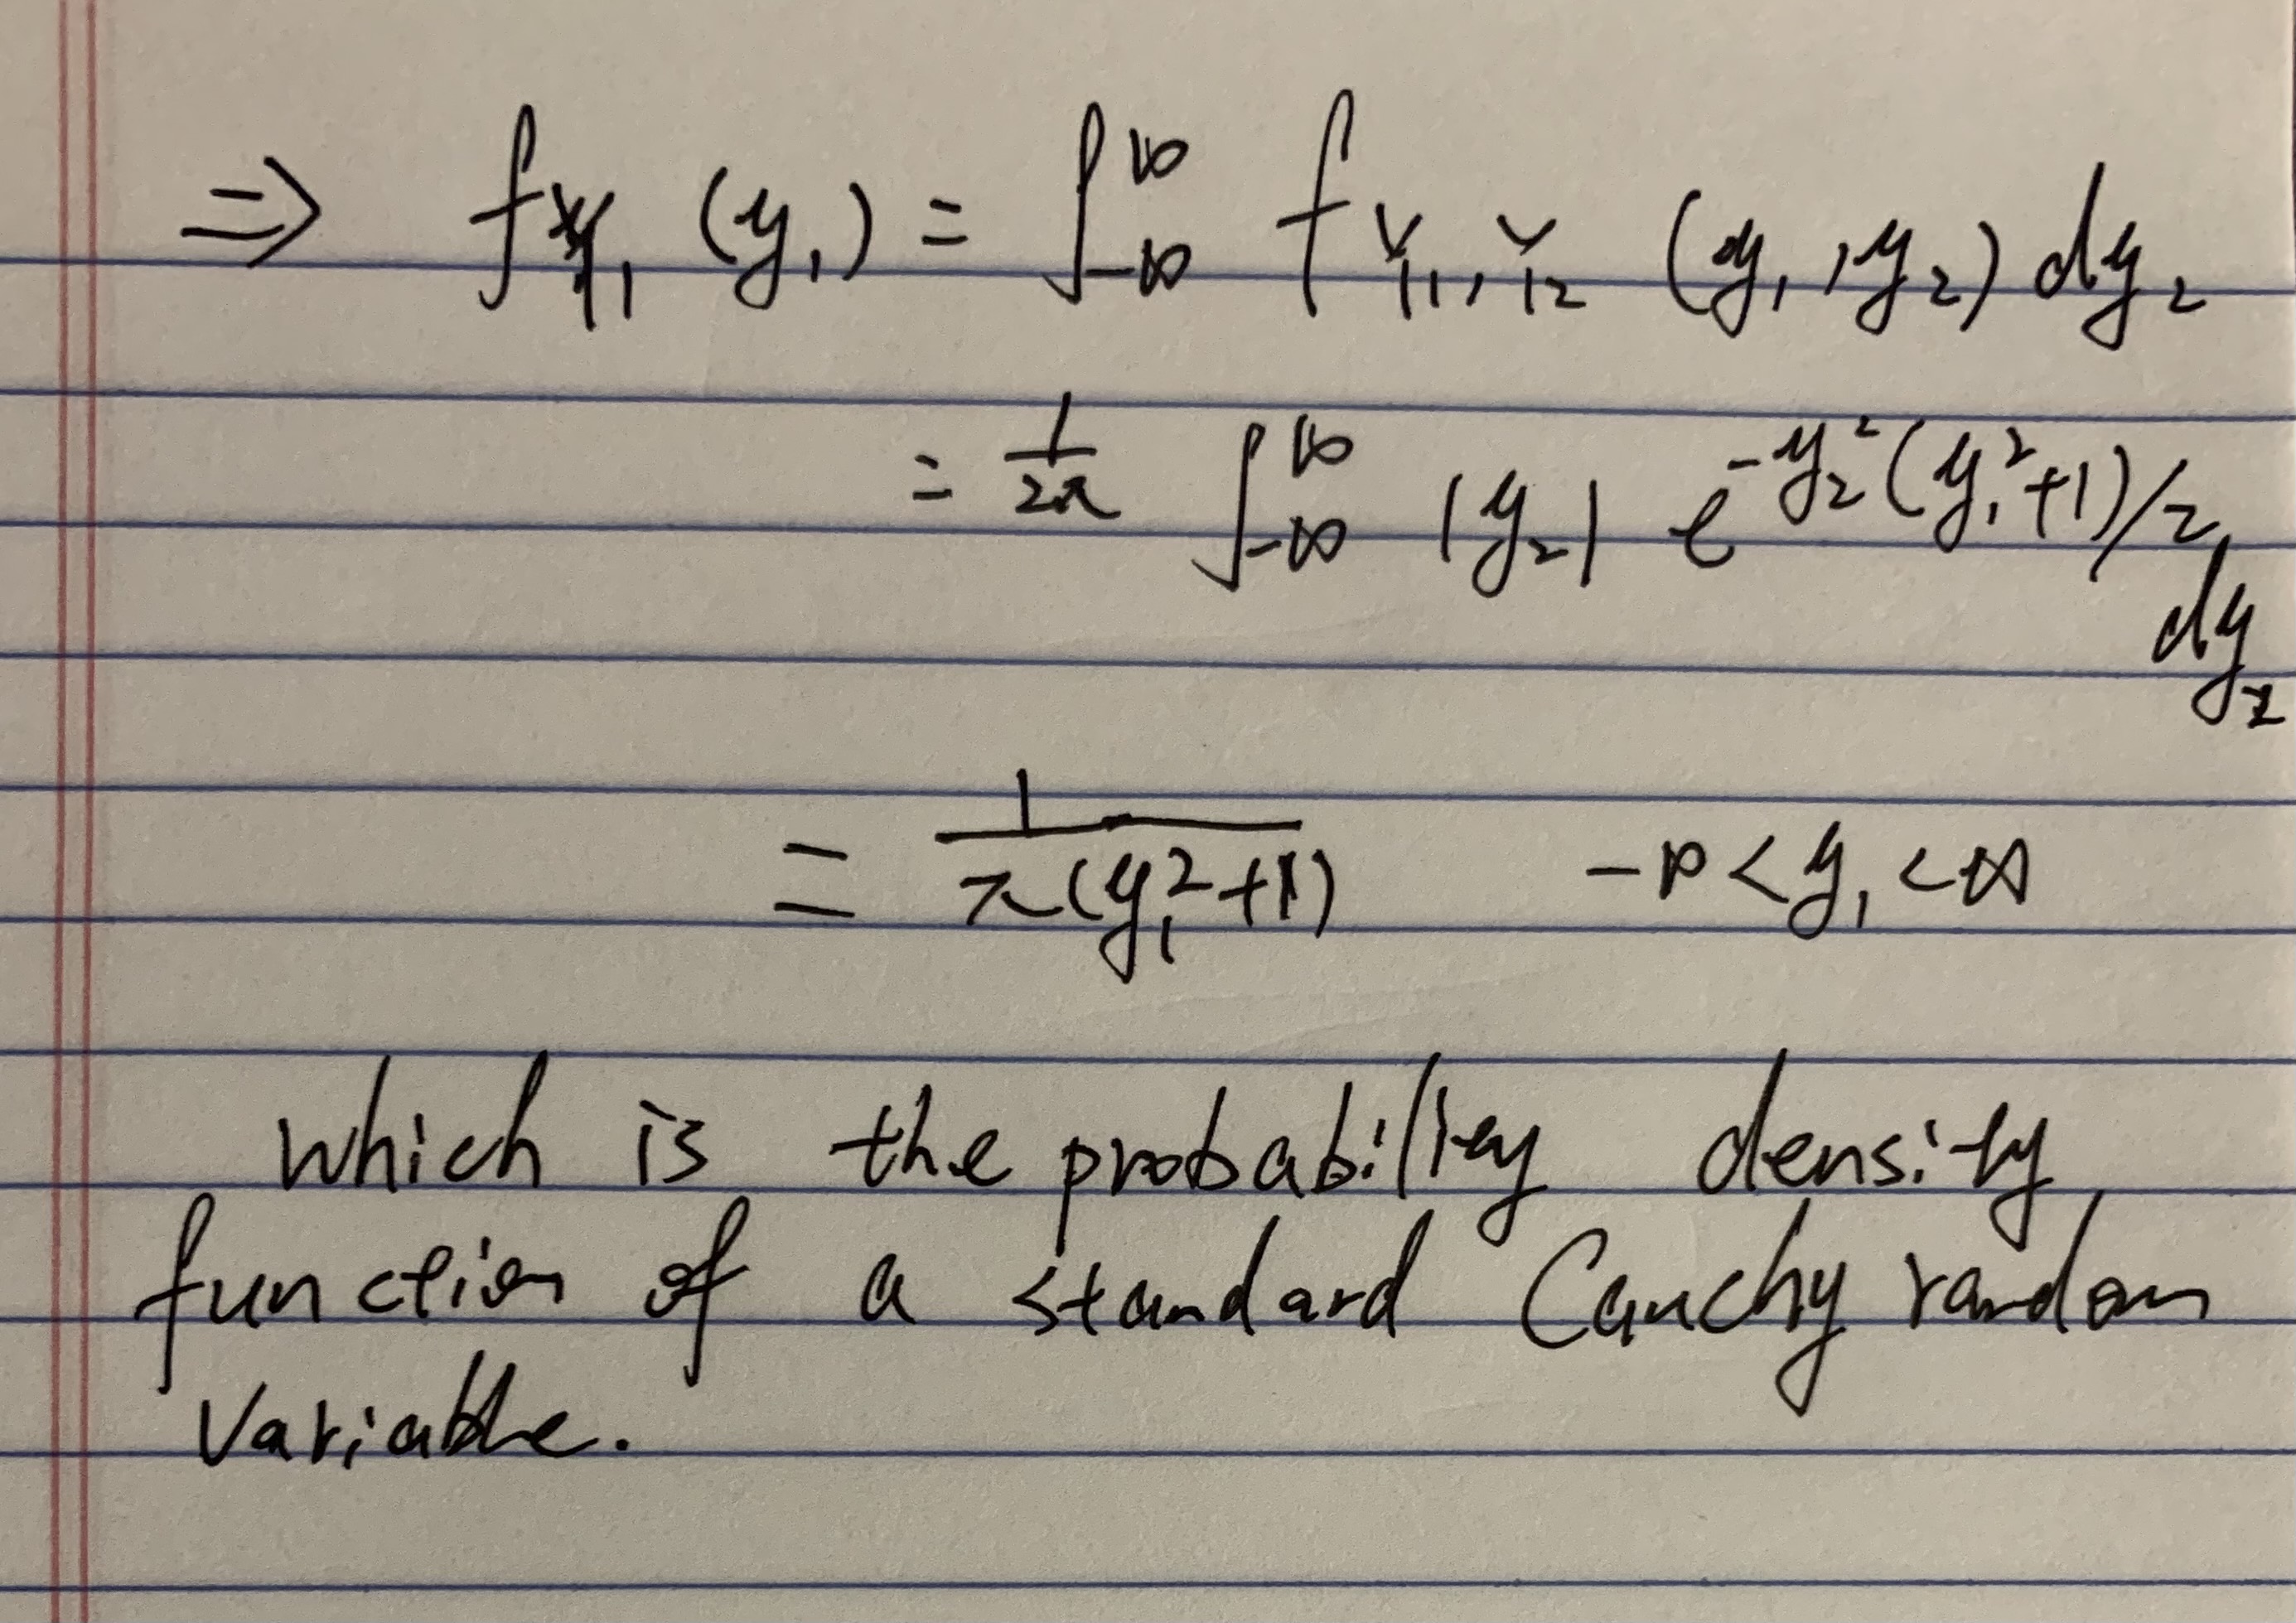 ⇒ f_{Y_1}(y_1) = ∫_{-∞}^{∞} f_{Y_1,Y_2}(y_1,y_2) dy_2
= \frac{1}{2π} ∫_{-∞}^{∞} |y_2| e^{-y_2^2(y_1^2+1)/2} dy_2
= \frac{1}{π(y_1^2+1)} -∞<y_1<∞
which is the probability density
function of a standard Cauchy random
variable.